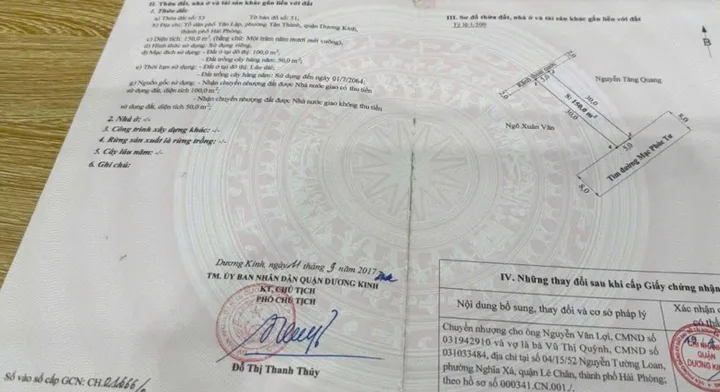 II. Thửa đất, nhà ở và tài sản khác gắn liền với đất
1. Thửa đất:
a) Thửa đất số: 53 Tờ bản đồ số: 31,
b) Địa chỉ: Tổ dân phố Tân Lập, phường Tân Thành, quận Dương Kinh,
thành phố Hải Phòng,
c) Diện tích: 150,0 m², (bằng chữ: Một trăm năm mươi mét vuông),
d) Hình thức sử dụng: Sử dụng riêng,
đ) Mục đích sử dụng: - Đất ở tại đô thị: 100,0 m²;
- Đất trồng cây hàng năm: 50,0 m²;
e) Thời hạn sử dụng: - Đất ở tại đô thị: Lâu dài;
- Đất trồng cây hàng năm: Sử dụng đến ngày 01/7/2064;
g) Nguồn gốc sử dụng: - Nhận chuyển nhượng đất được Nhà nước giao có thu tiền
sử dụng đất, diện tích 100,0 m²;
- Nhận chuyển nhượng đất được Nhà nước giao không thu tiền
sử dụng đất, diện tích 50,0 m².
2. Nhà ở: -/-
3. Công trình xây dựng khác: -/-
4. Rừng sản xuất là rừng trồng: -/-
5. Cây lâu năm: -/-
6. Ghi chú:
Dương Kinh, ngày 11 tháng 9 năm 2017
TM. ỦY BAN NHÂN DÂN QUẬN DƯƠNG KINH
KT. CHỦ TỊCH
PHÓ CHỦ TỊCH
Đỗ Thị Thanh Thủy
Số vào sổ cấp GCN: CH.
III. Sơ đồ thửa đất, nhà ở và tài sản khác gắn liền với đất
Tỷ lệ 1/500
B
Nguyễn Tăng Quang
5,0
S: 150,0 m²
30,0
30,0
Ngô Xuân Văn
5,0
8,0
Tim đường Mạc Phúc Tư
8,0
IV. Những thay đổi sau khi cấp Giấy chứng nhận
Nội dung bổ sung, thay đổi và cơ sở pháp lý
Xác nhận
có thẩ
Chuyển nhượng cho ông Nguyễn Văn Lợi, CMND số
031942910 và vợ là bà Vũ Thị Quỳnh, CMND số
031033484, địa chỉ tại số 04/15/52 Nguyễn Tường Loan,
phường Nghĩa Xá, quận Lê Chân, thành phố Hải Phòng;
theo hồ sơ số 000341.CN.001./.
CHI NHÁNH
QUẬN
DƯƠNG KI